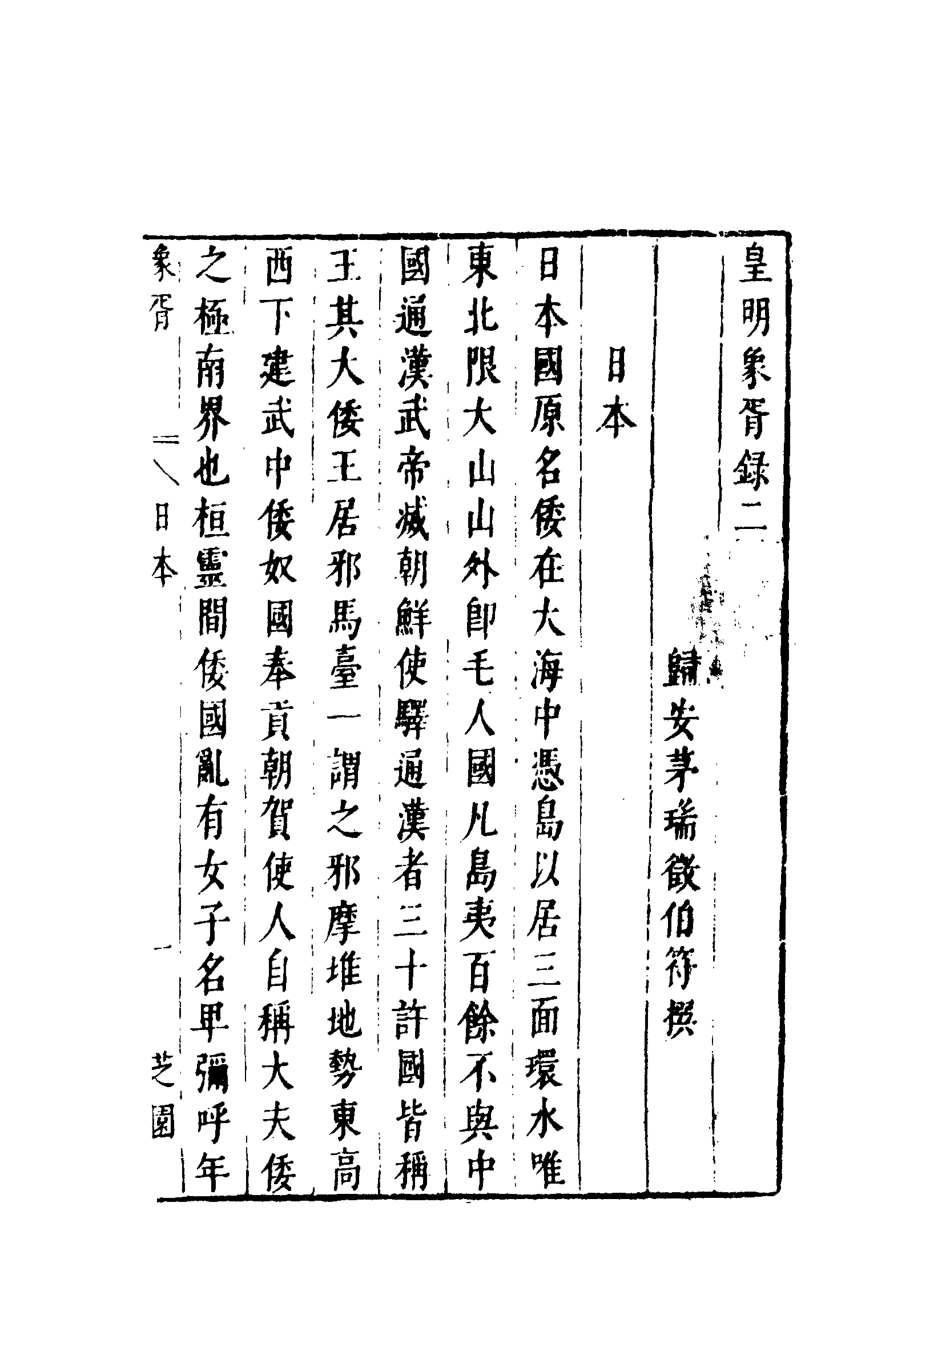 皇明象胥録二
歸安茅瑞徵伯符撰
日本
日本國原名倭在大海中憑島以居三面環水唯
東北限大山山外卽毛人國凡島夷百餘不與中
國通漢武帝滅朝鮮使驛通漢者三十許國皆稱
王其大倭王居邪馬臺一謂之邪摩堆地勢東高
西下建武中倭奴國奉貢朝賀使人自稱大夫倭
之極南界也桓靈間倭國亂有女子名卑彌呼年
象胥 二 日本 一 芝園